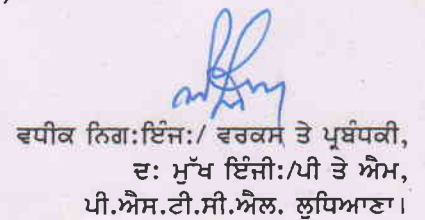 ਵਧੀਕ ਨਿਗ:ਇੰਜ:/ ਵਰਕਸ ਤੇ ਪ੍ਰਬੰਧਕੀ,
ਦ: ਮੁੱਖ ਇੰਜੀ:/ਪੀ ਤੇ ਐਮ,
ਪੀ.ਐਸ.ਟੀ.ਸੀ.ਐਲ. ਲੁਧਿਆਣਾ।